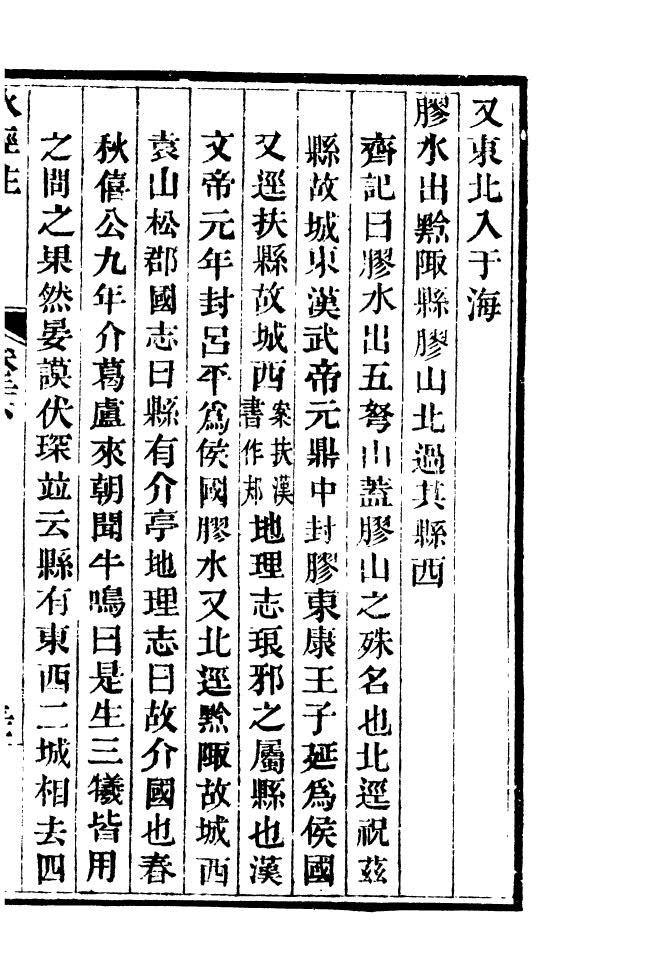 又東北入于海
膠水出黔陬縣膠山北過其縣西
齊記曰膠水出五弩山蓋膠山之殊名也北逕祝茲
縣故城東漢武帝元鼎中封膠東康王子延爲侯國
又逕扶縣故城西案扶漢書作邞地理志琅邪之屬縣也漢
文帝元年封呂平爲侯國膠水又北逕黔陬故城西
袁山松郡國志曰縣有介亭地理志曰故介國也春
秋僖公九年介葛盧來朝聞牛鳴曰是生三犧皆用
之問之果然晏謨伏琛竝云縣有東西二城相去四
水經注